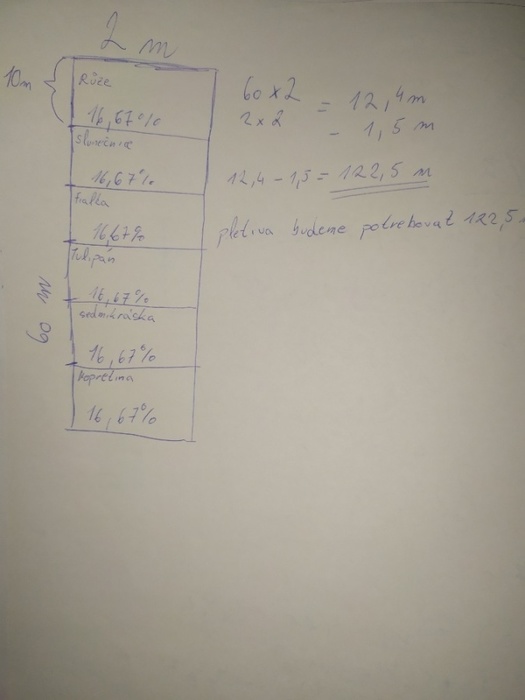 2 m
10m
Růže
16,67%
Slunečnice
16,67%
fialka
16,67%
Tulipán
16,67%
sedmikráska
16,67%
Kopretina
16,67%
60 m
60 x 2
2 x 2
= 12,4m
- 1,5 m
12,4 - 1,5 = 122,5 m
pletiva budeme potrebovat 122,5